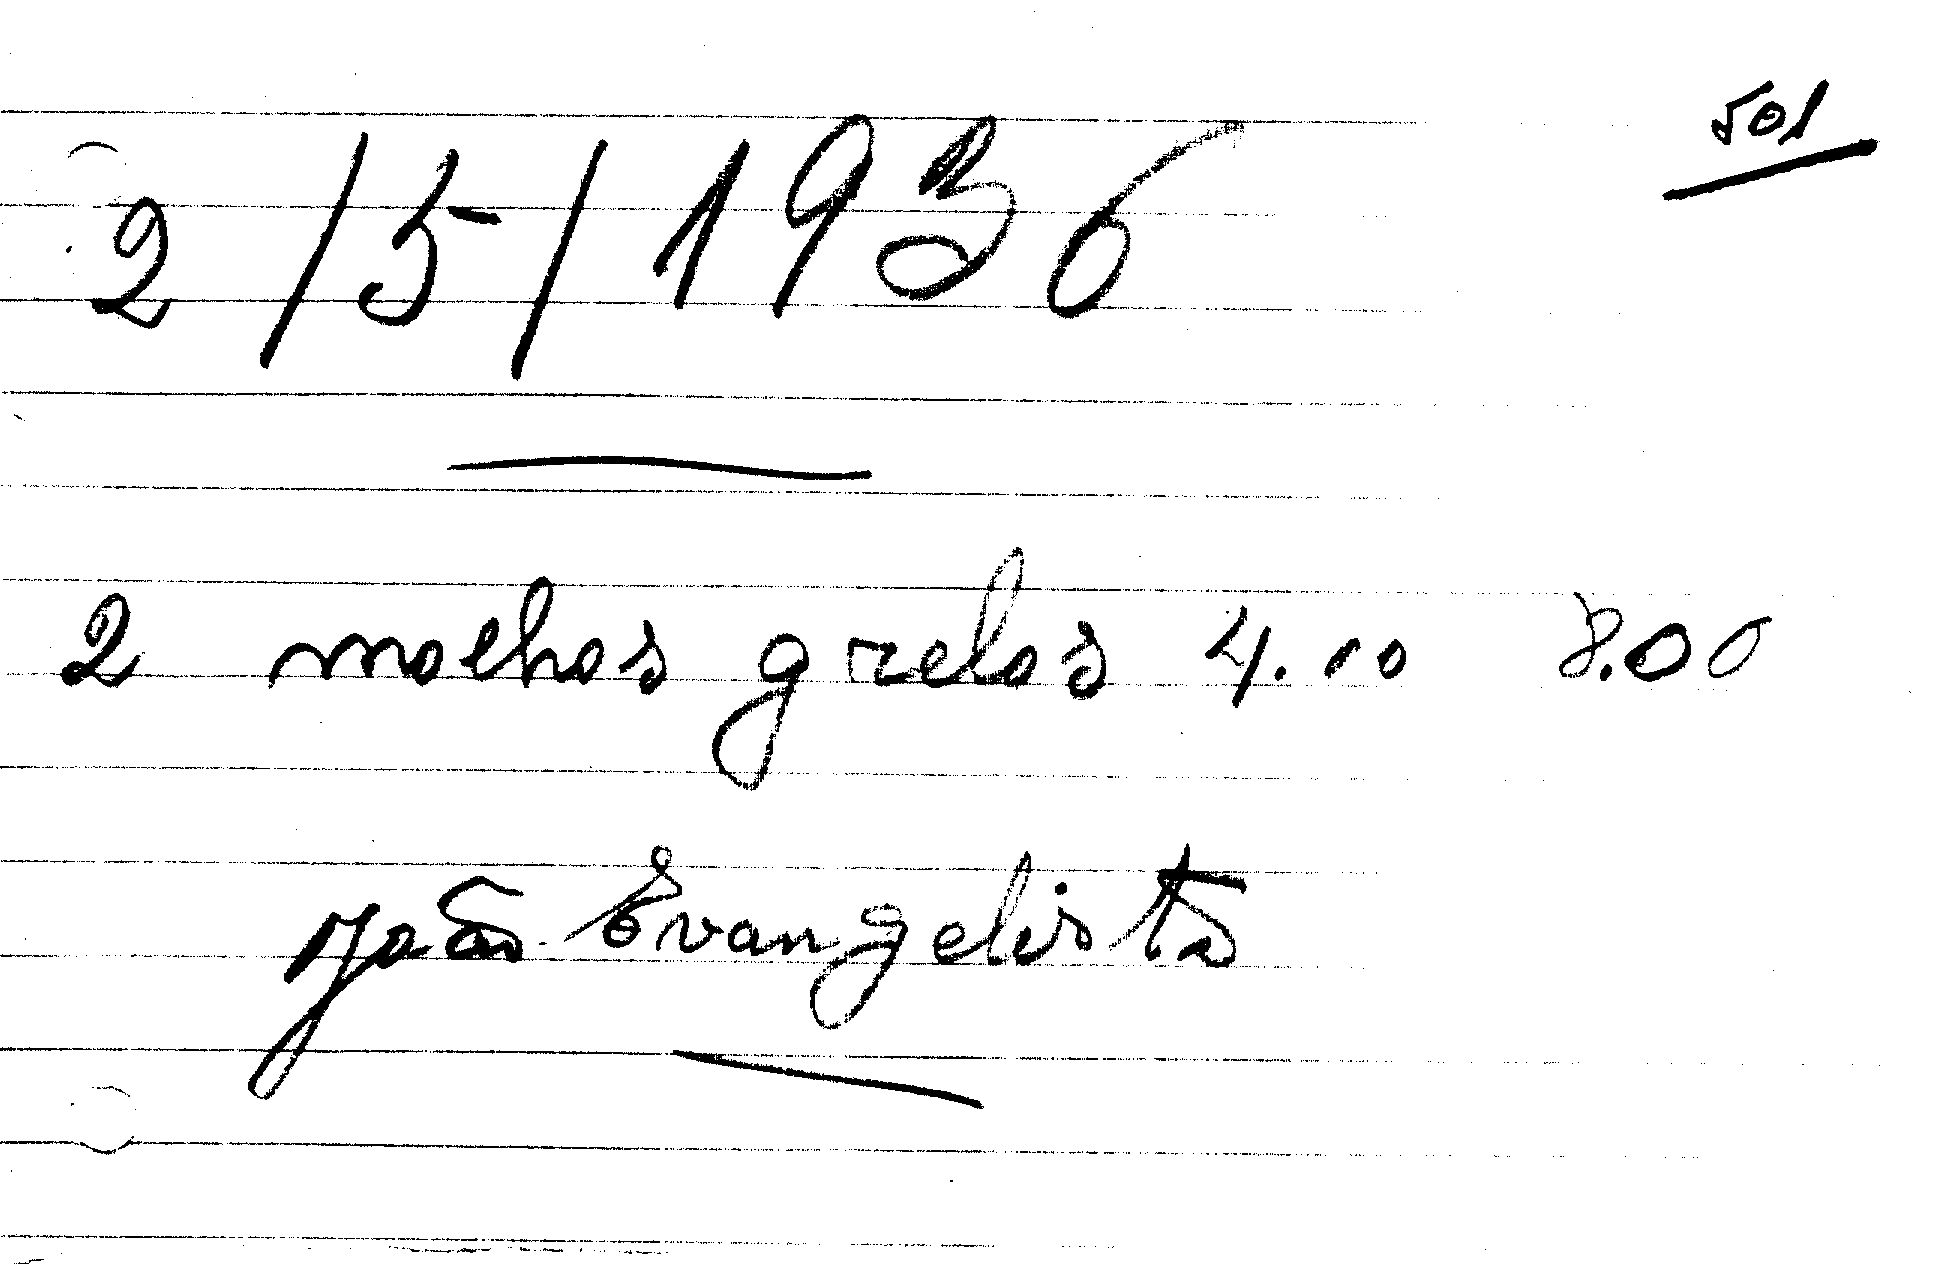 501
2/5/1936
2 molhos grelos 4.00 8.00
João Evangelista